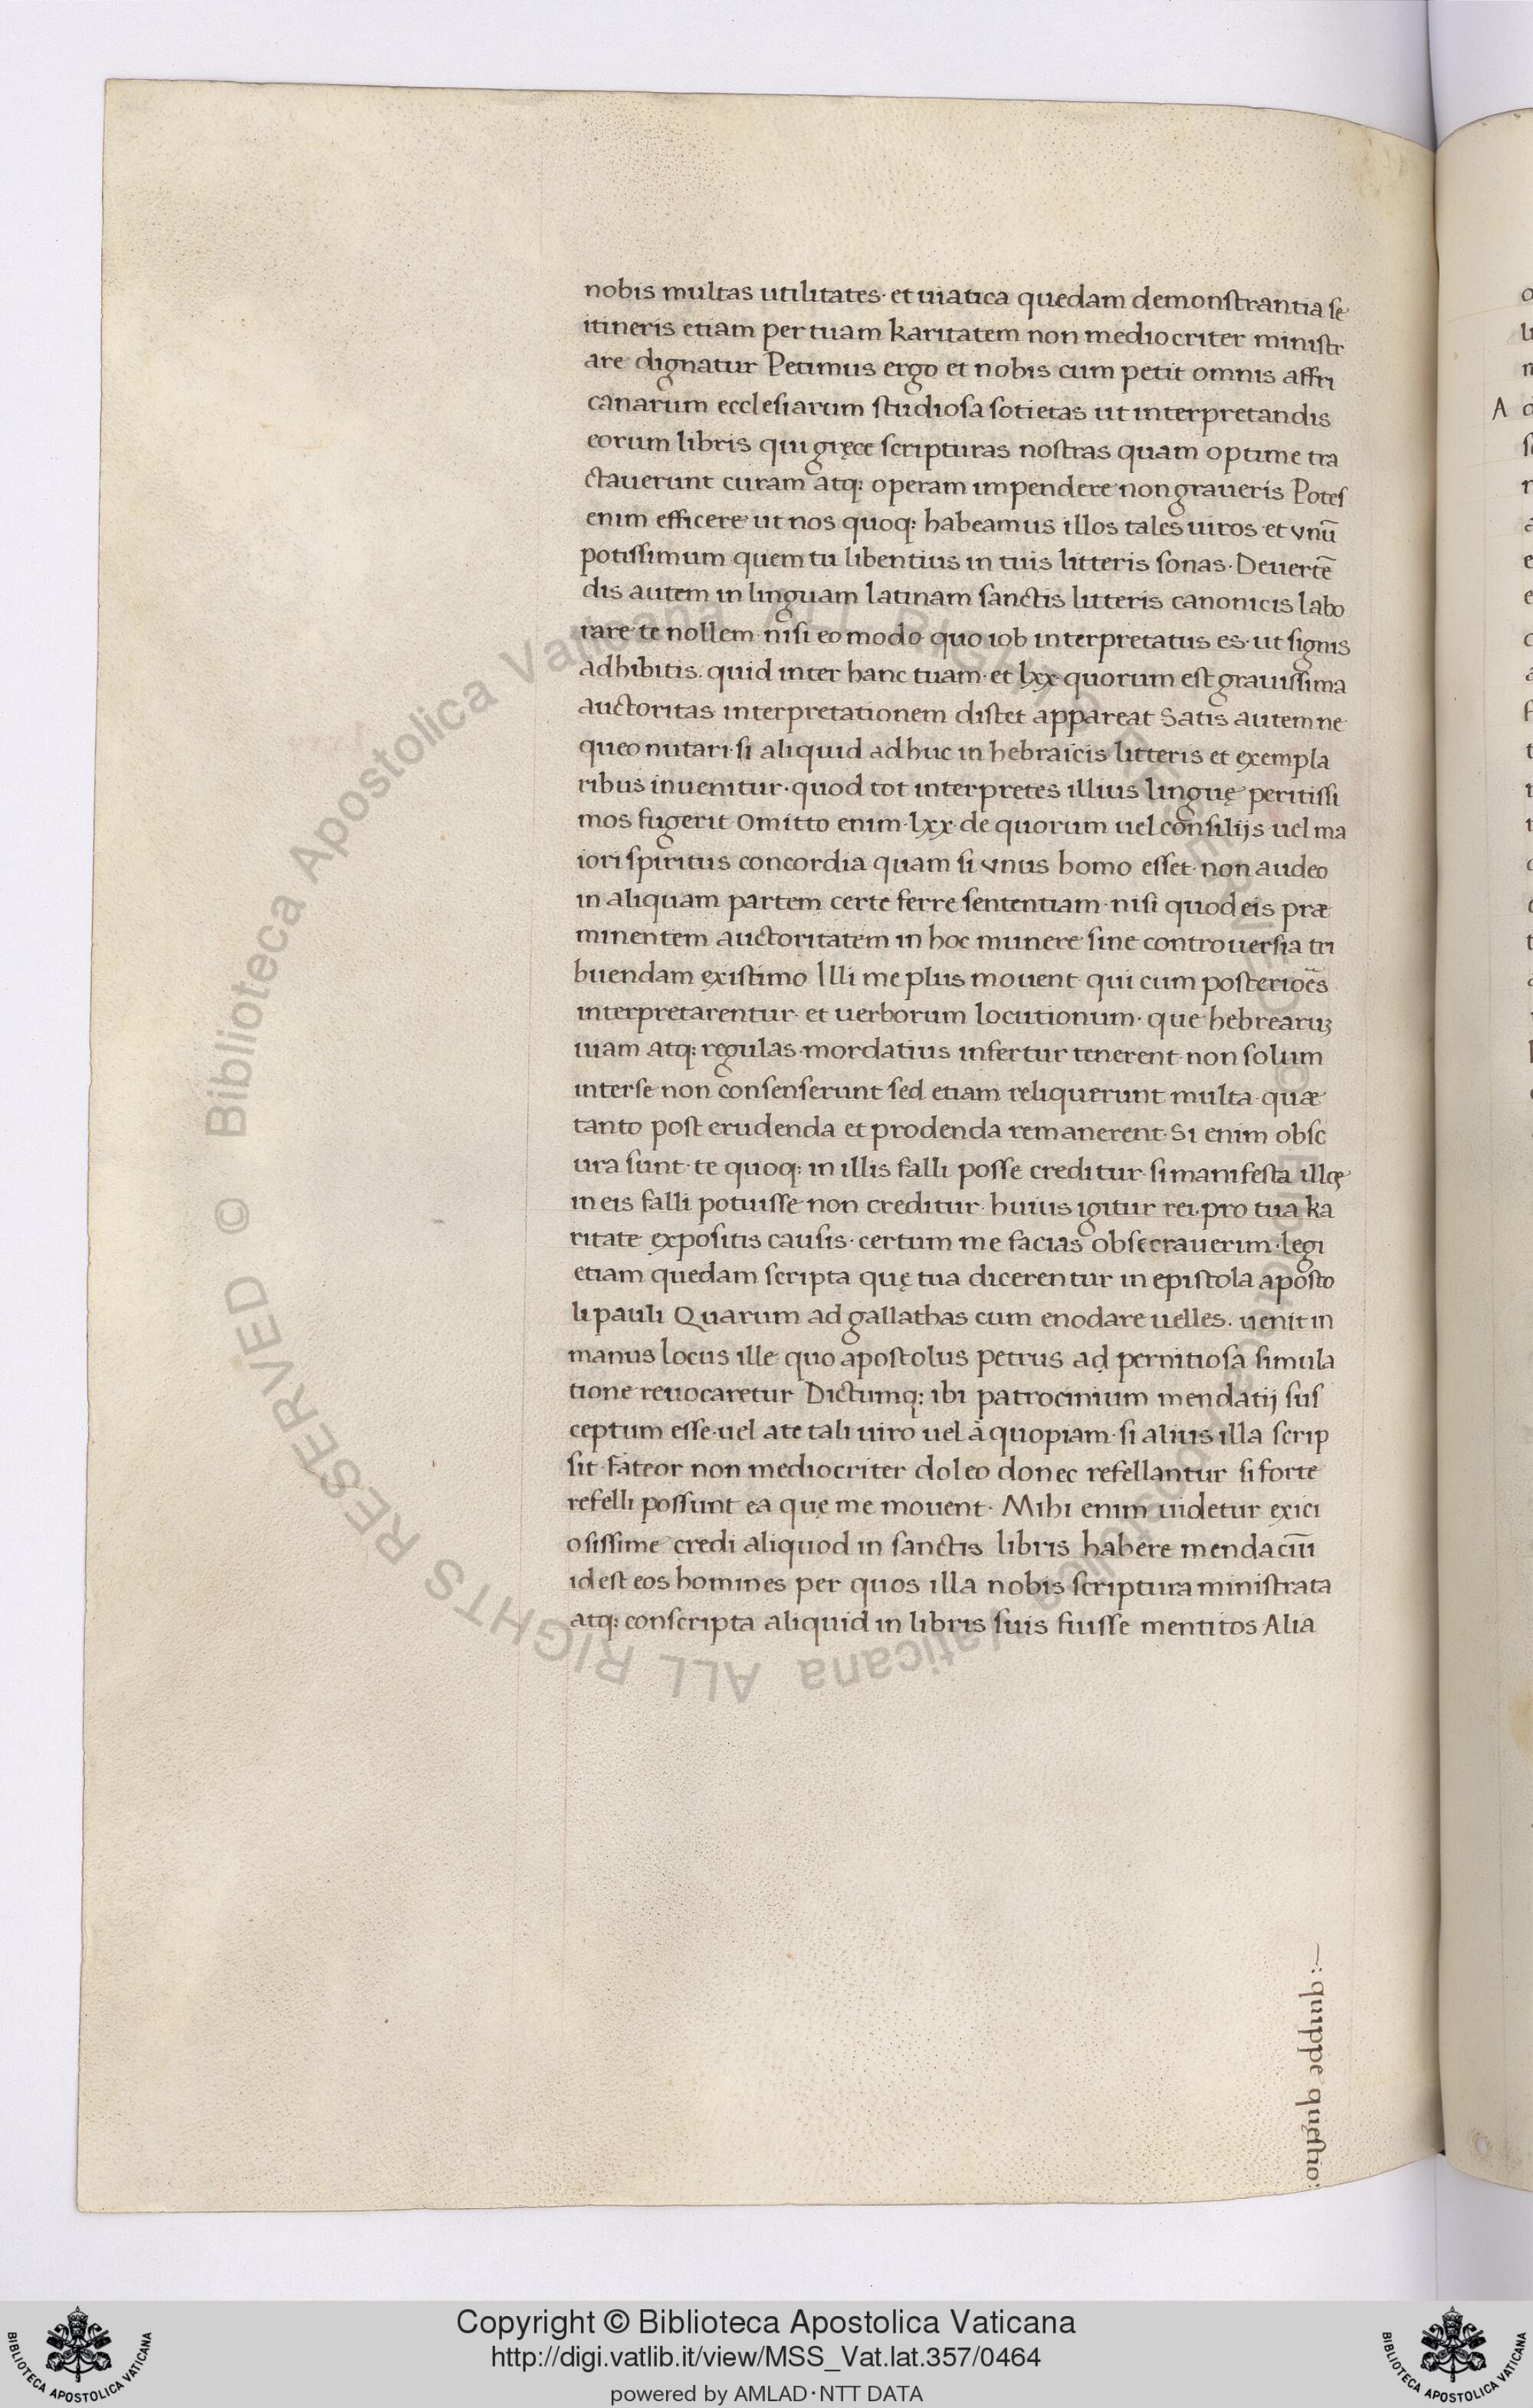 nobis multas utilitates· et uiatica quedam demonstrantia se
itineris etiam per tuam karitatem non mediocriter ministr
are dignatur Petimus ergo et nobis cum petit omnis affri
canarum ecclesiarum studiosa sotietas ut interpretandis
eorum libris qui gręce scripturas nostras quam optime tra
ctauerunt curam atq: operam impendere non graueris Potes
enim efficere ut nos quoq: habeamus illos tales uiros et vnū
potissimum quem tu libentius in tuis litteris sonas· Deuertē
dis autem in linguam latinam sanctis litteris canonicis labo
rare te nollem nisi eo modo quo iob interpretatus es· ut signis
adhibitis. quid inter hanc tuam· et lxx quorum est grauissima
auctoritas interpretationem distet appareat Satis autem ne
queo nutari· si aliquid adhuc in hebraicis litteris et exempla
ribus inuenitur· quod tot interpretes illius linguę peritissi
mos fugerit Omitto enim· lxx· de quorum uel consilijs uel ma
iori spiritus concordia quam si vnus homo esset· non audeo
in aliquam partem certe ferre sententiam· nisi quod eis præ
minentem auctoritatem in hoc munere sine controuersia tri
buendam existimo Illi me plus mouent qui cum posterioēs
interpretarentur· et uerborum locutionum· que hebrearuʒ
uiam atq: regulas· mordatius infertur tenerent· non solum
inter se non consenserunt sed etiam reliquerunt multa quæ
tanto post erudenda et prodenda remanerent· Si enim obsc
ura sunt· te quoq: in illis falli posse creditur· si manifesta illoę
in eis falli potuisse non creditur· huius igitur rei· pro tua ka
ritate expositis causis· certum me facias obsecrauerim· legi
etiam quedam scripta quę tua dicerentur in epistola aposto
li pauli Quarum ad gallathas cum enodare uelles. uenit in
manus locus ille quo apostolus petrus ad pernitiosa simula
tione reuocaretur Dictumq: ibi patrocinium mendatij sus
ceptum esse· uel a te tali uiro uel à quopiam· si alius illa scrip
sit· fateor non mediocriter doleo donec refellantur si forte
refelli possunt ea quę me mouent· Mihi enim uidetur exici
osissime credi aliquod in sanctis libris habere mendaciū
id est eos homines per quos illa nobis scriptura ministrata
atq: conscripta aliquid in libris suis fuisse mentitos Alia
—: quippe quęstio:
© Biblioteca Apostolica Vaticana ALL RIGHTS RESERVED
Copyright © Biblioteca Apostolica Vaticana
http://digi.vatlib.it/view/MSS_Vat.lat.357/0464
powered by AMLAD·NTT DATA
BIBLIOTECA APOSTOLICA VATICANA
BIBLIOTECA APOSTOLICA VATICANA